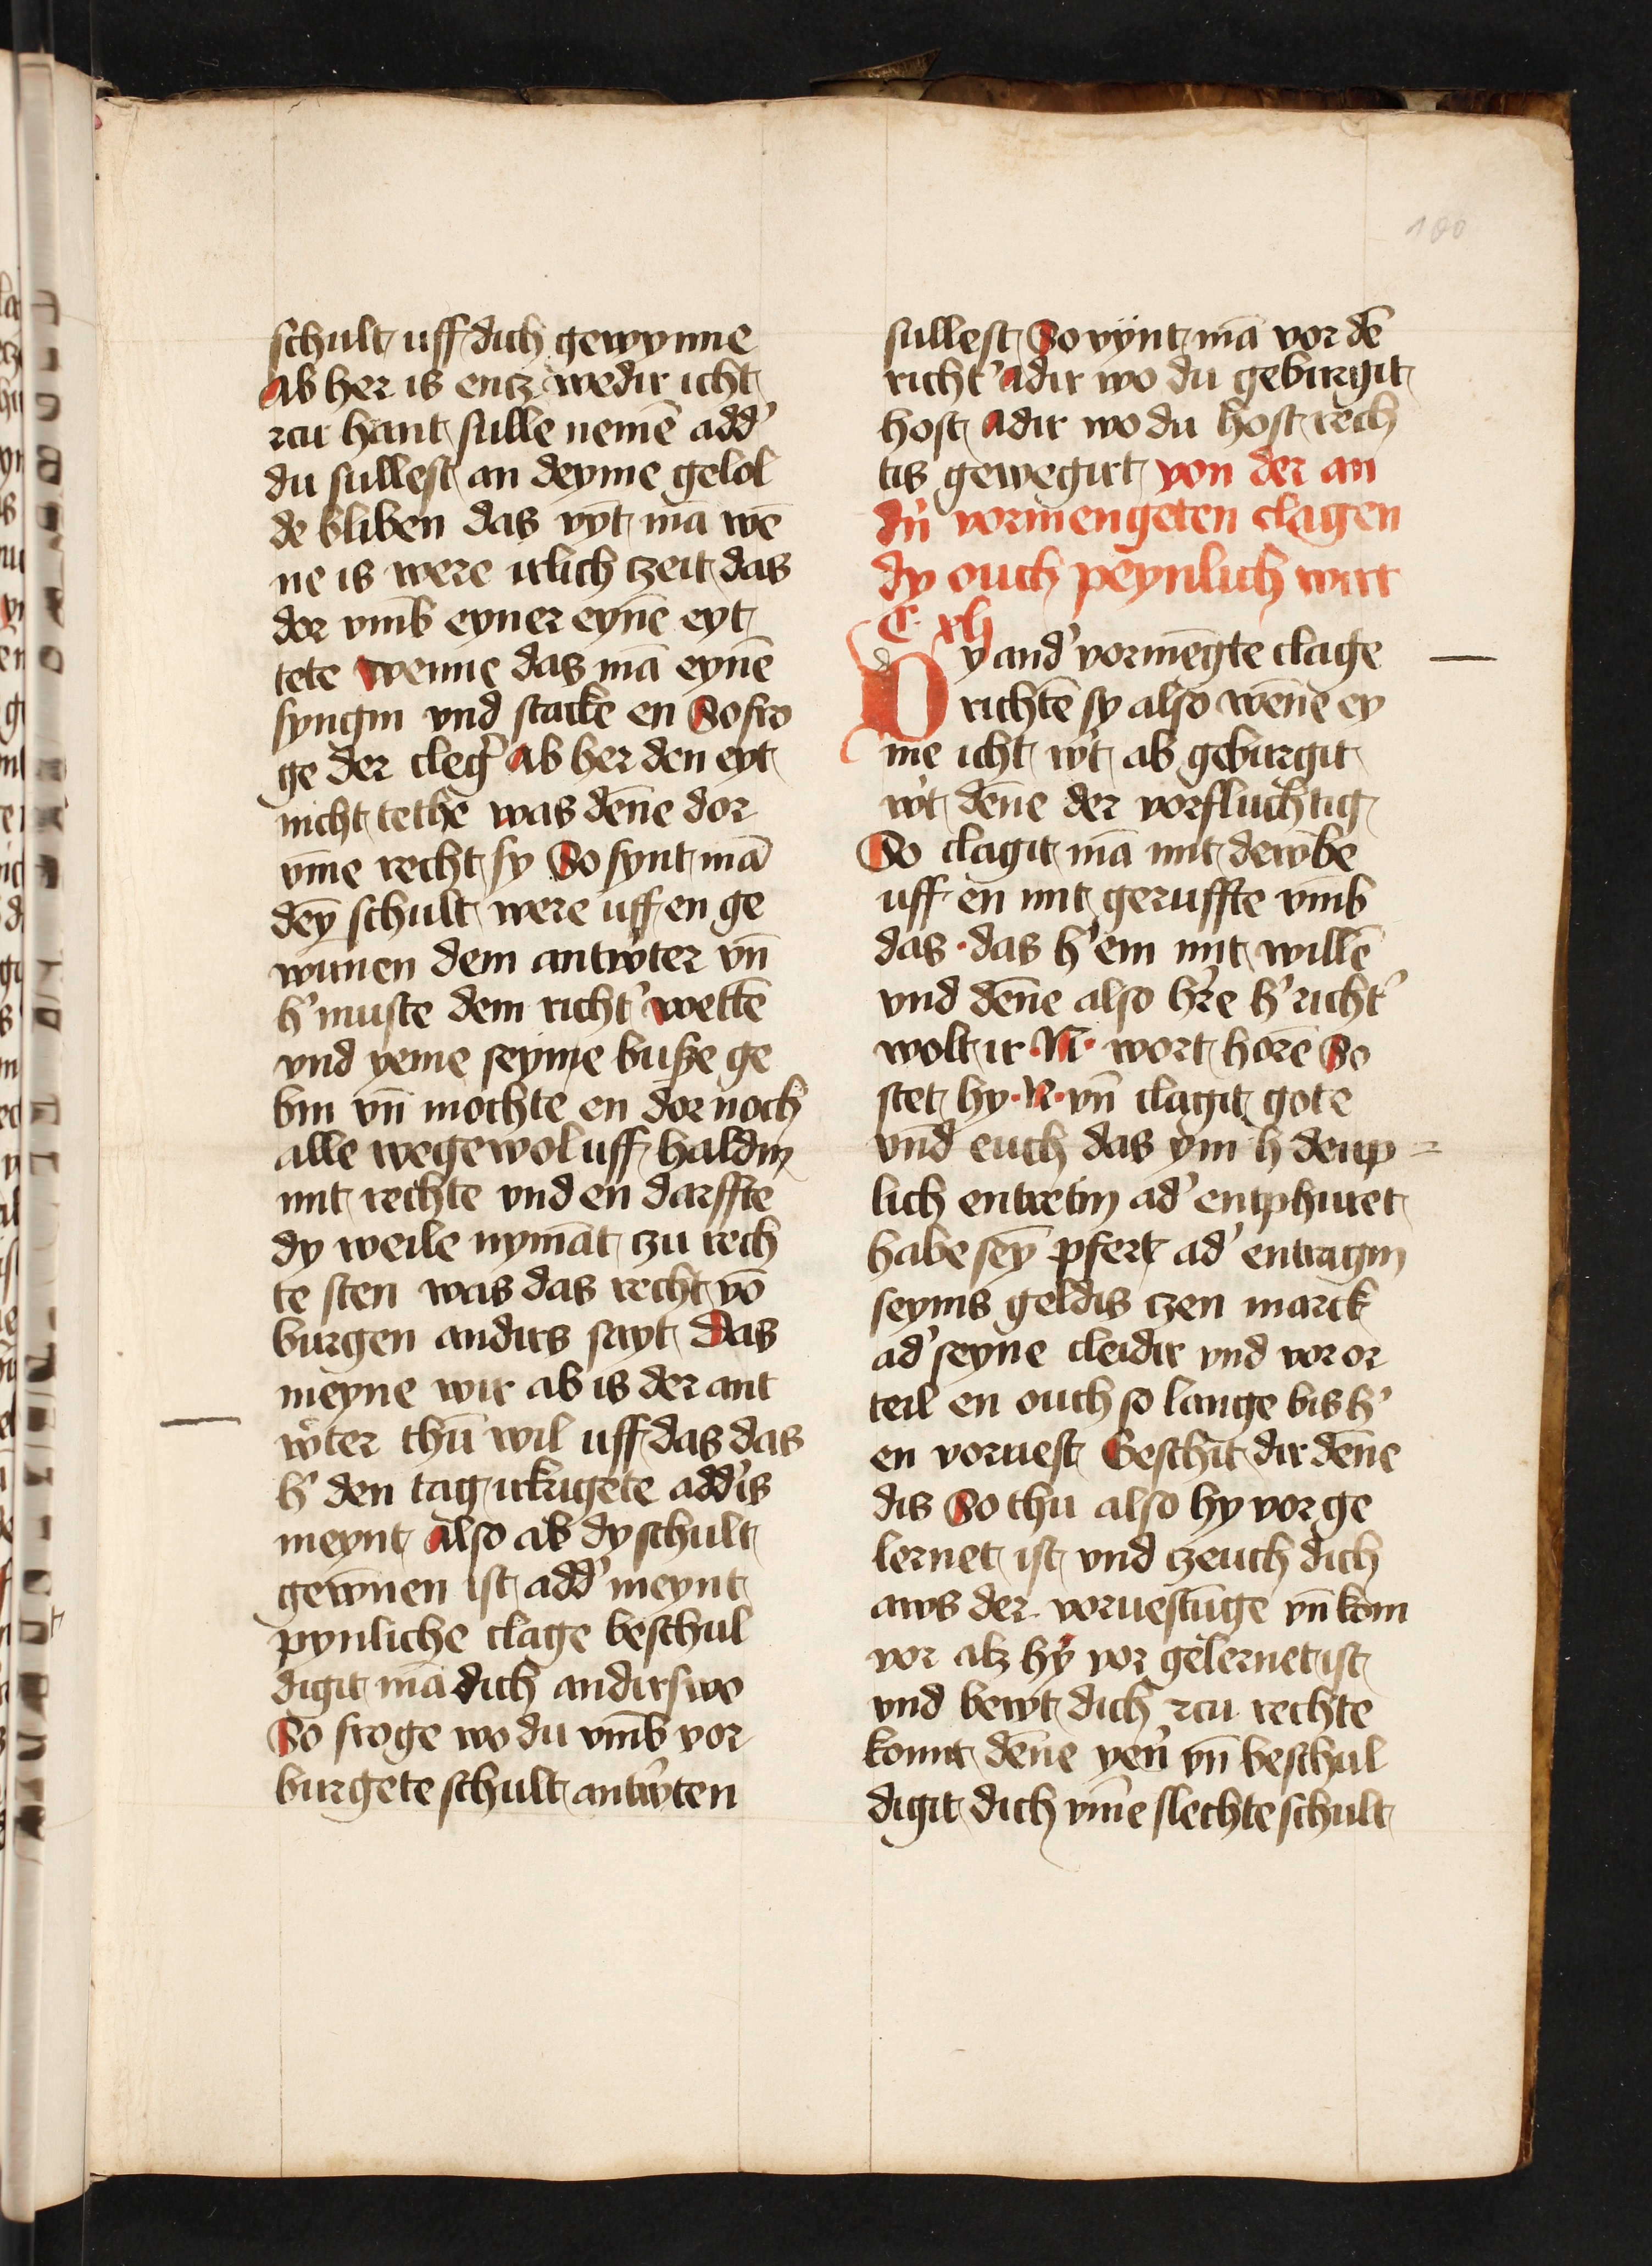 100
schult uff dich gewynne
Ab her is entzwedir icht
zcu hant sulle nemē add'
du sullest an deyme gelol
de bliben das vyt mā wē
ne is were irlich czeit das
dor vmb eyner eynē eyt
tete wenne das mā eynē
fyngin vnd stacke en So fro
ge der cleg' Ab her den eyt
nicht tethe was dēne dor
vm̄e recht sy So fynt mā
dey̅ schult were uff en ge
wūnen dem antw'ter vn̄
h' muste dem richt' wettē
vnd yeme seyme busze ge
bin vn̄ mochte en dor noch
alle wege wol uff haldin
mit rechte vnd en darffte
dy weile nymāt czu rech
te sten was das recht vō
burgen andirs sayt Das
meyne wir ab is der ant
w'ter thū wil uff das das
h' den tag irkrigete add' is
meynt Also ab dy schult
gewōnen ist add' meynt
pynliche clage beschul
digit mā dich anderswo
So froge wo du vmb vor
burgete schult antw'ten
sullest So vynt mā vor dē
richt' Adir wo du gebirgit
host Adir wo du host rech
tis gewegirt von der an
d'n vormengeten clagen
dy ouch peynlich wirt
C. xlj
d
Dy and' vormēgte clage
richtē sy also wēne ey
me icht w't ab gebirgit
w't dēne der vorfluchtig
So clagit mā mit dewbe
uff en mit geruffte vmb
das · das h' em mit willē
vnd dēne also h're h' richt'
wolt ir · N · wort horē So
stet hy · N · vn̄ clagit gote
vnd euch das ym h deup
lich entretin ad' entphuret
habe sey̅ pfert ad' entragin
seyins geldis czen marck
ad' seyne cleidir vnd vor or
teil en ouch so lange bis h'
en voruest Geschit dir dēne
dis So thu also hy vor ge
lernet ist vnd czeuch dich
aws der voruestūge vn̄ kom
vor alz hy vor gelernet ist
vnd bewt dich zcu rechte
komt dēne yen' vn̄ beschul
digit dich vm̄e slechte schult